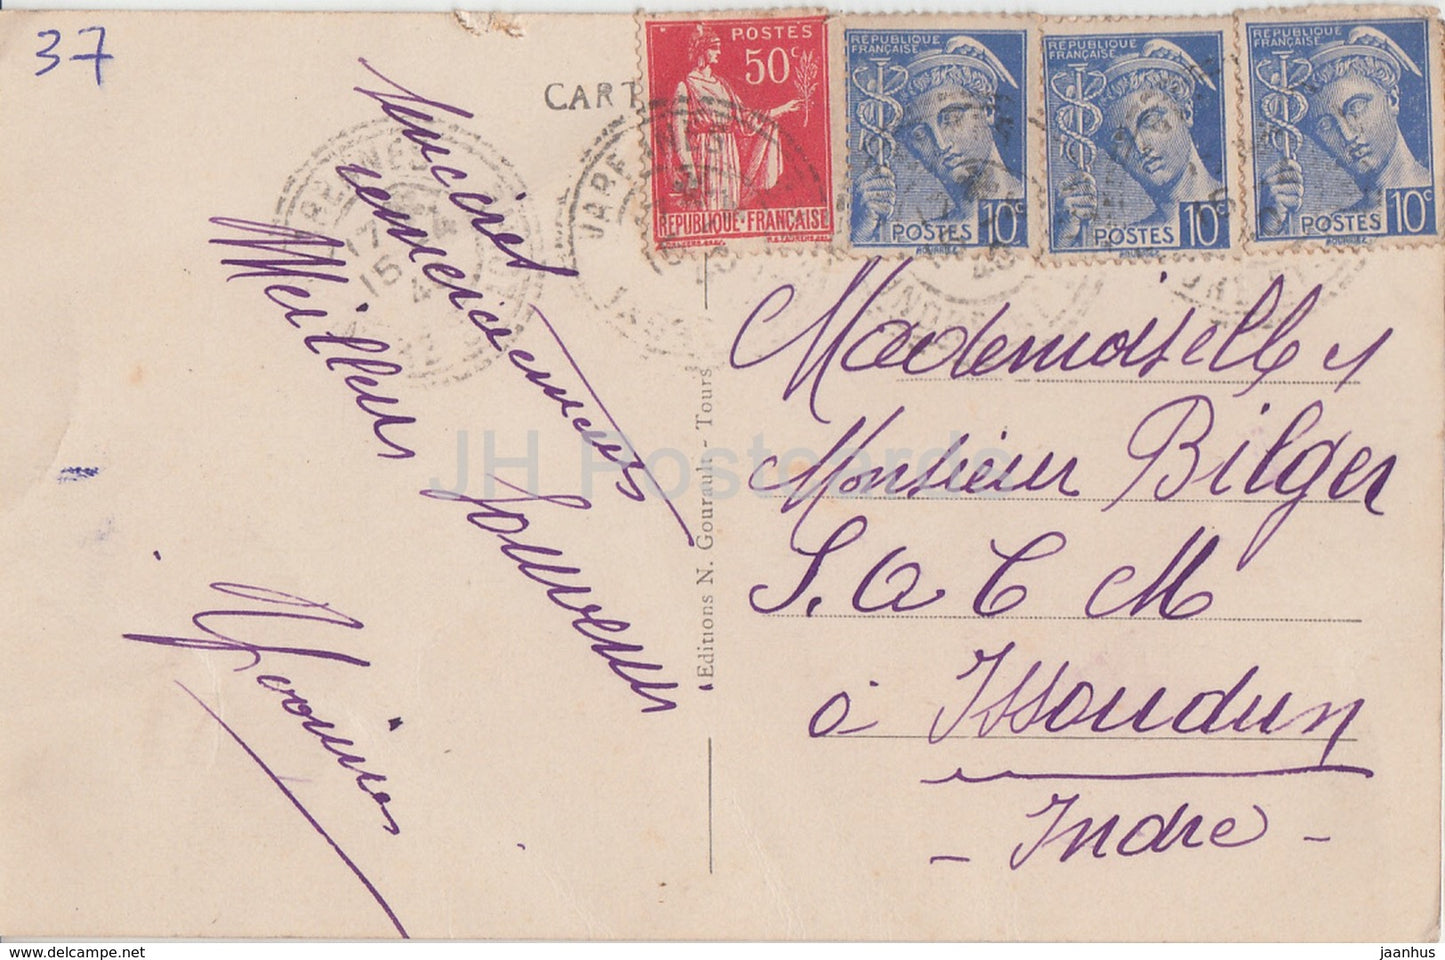 37
CART
POSTES
50c
REPUBLIQUE-FRANÇAISE
REPUBLIQUE
FRANÇAISE
POSTES 10c
REPUBLIQUE
FRANÇAISE
POSTES 10c
REPUBLIQUE
FRANÇAISE
POSTES 10c
Sincères
remerciements
Meilleurs Souvenirs
Editions N. Gourault - Tours
Mademoiselle
Monsieur Bilger
S. A C M
à Issoudun
- Indre -
JH Postcards
www.delcampe.net
jaanhus